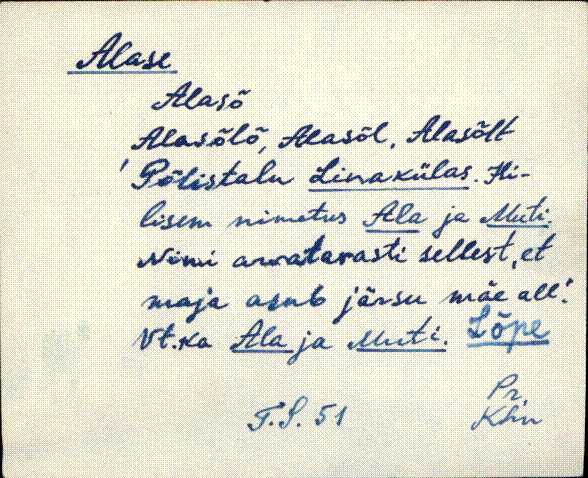 Alase
Alasõ
Alasõlõ, Alasõl, Alasõlt
'Põlistalu Linakülas. Hi-
lisem nimetus Ala ja Muti.
Nimi arvatavasti sellest, et
maja asub järsu mäe all'.
Vt. ka Ala ja Muti. Lõpe
T.S. 51
Pr.
Khn